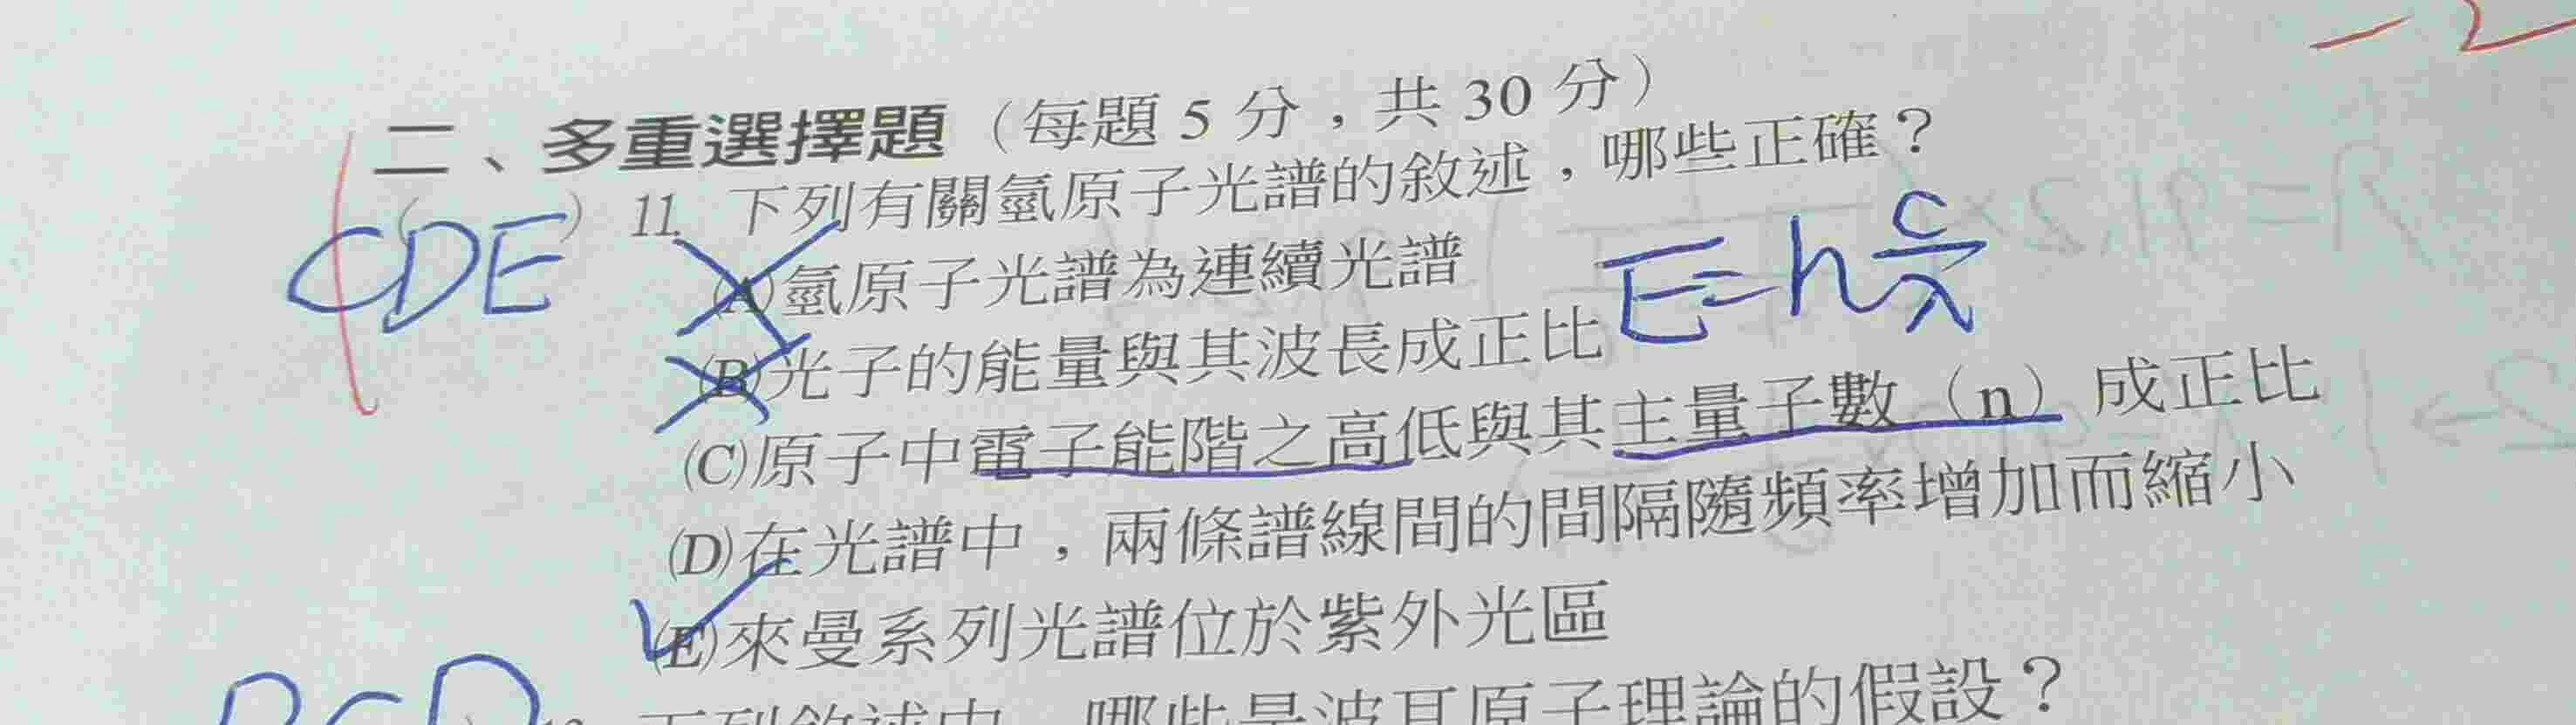 -2
二、多重選擇題（每題 5 分，共 30 分）
CDE ( ) 11. 下列有關氫原子光譜的敘述，哪些正確？
(A)氫原子光譜為連續光譜
(B)光子的能量與其波長成正比 E=h c/λ
(C)原子中電子能階之高低與其主量子數（n）成正比
(D)在光譜中，兩條譜線間的間隔隨頻率增加而縮小
(E)來曼系列光譜位於紫外光區
BCD ) 12. 下列敘述中，哪些是波耳原子理論的假設？